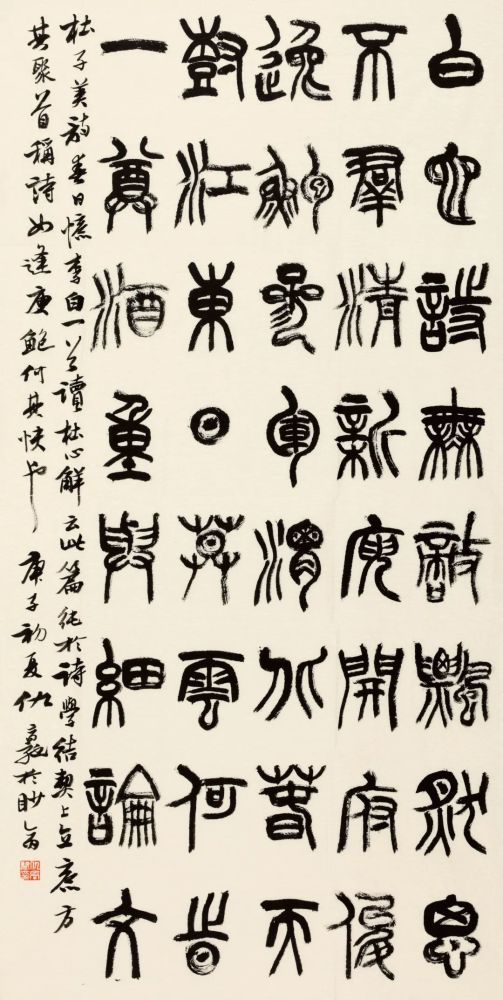 白也詩無敵飄然思
不羣清新庾開府俊
逸鮑參軍渭北春天
樹江東日莫雲何時
一尊酒重與細論文
杜子美詩春日憶李白一首讀杜心解云此篇純於詩學結契上立意方
其聚首稱詩如逢庾鮑何其快也 庚子初夏仇於